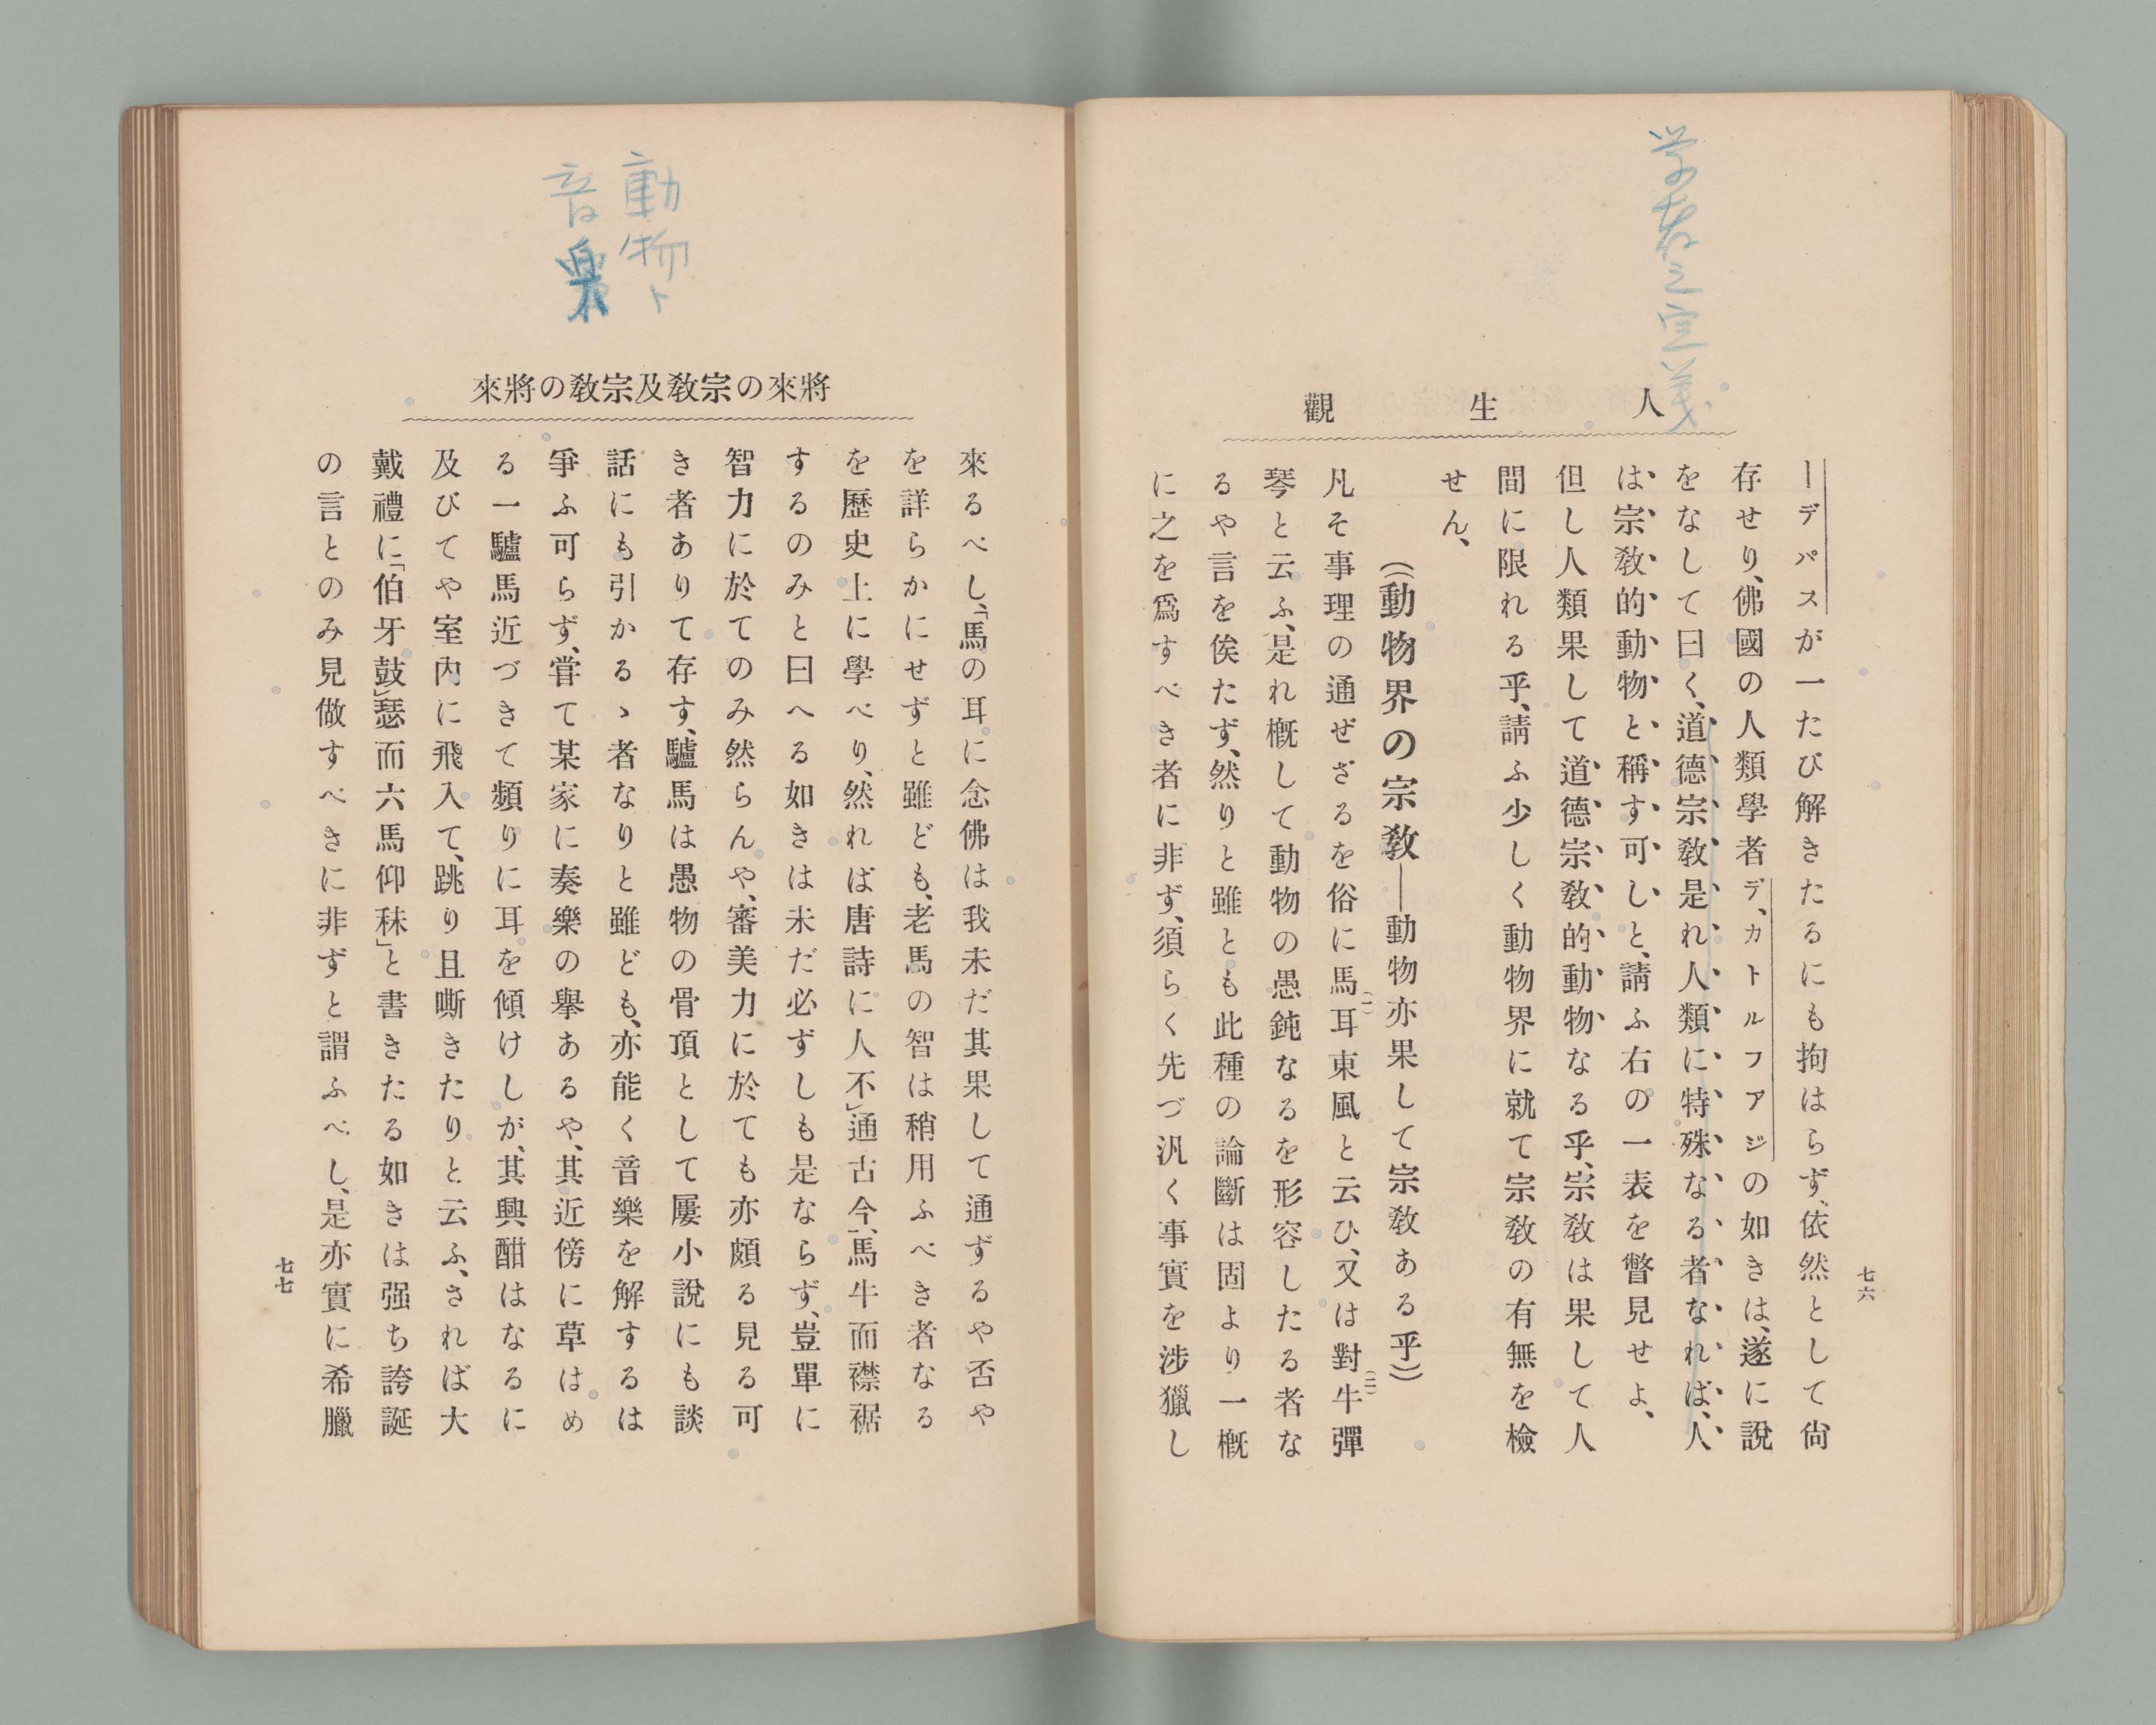 学者之宣義
人生觀
七六
ーデパスが一たび解きたるにも拘はらず、依然として尙
存せり、佛國の人類學者デ、カトルフアジの如きは、遂に說
をなして曰く、道德宗敎是れ人類に特殊なる者なれば、人
は、宗敎的動物と稱す可しと、請ふ右の一表を瞥見せよ、
但し人類果して道德宗敎的動物なる乎、宗敎は果して人
間に限れる乎、請ふ少しく動物界に就て宗敎の有無を檢
せん、
(動物界の宗敎―動物亦果して宗敎ある乎)
凡そ事理の通ぜざるを俗に馬(一)耳東風と云ひ、又は對(二)牛彈
琴と云ふ、是れ槪して動物の愚鈍なるを形容したる者な
るや言を俟たず、然りと雖とも此種の論斷は固より一槪
に之を爲すべき者に非ず、須らく先づ汎く事實を涉獵し
動物ト
音楽
將來の宗敎及宗敎の將來
來るべし、「馬の耳に念佛は我未だ其果して通ずるや否や
を詳らかにせずと雖ども、老馬の智は稍用ふべき者なる
を歷史上に學べり、然れば唐詩に人不」通古今、馬牛而襟裾
するのみと曰へる如きは未だ必ずしも是ならず、豈單に
智力に於てのみ然らんや、審美力に於ても亦頗る見る可
き者ありて存す、驢馬は愚物の骨頂として屢小說にも談
話にも引かるゝ者なりと雖ども、亦能く音樂を解するは
爭ふ可らず、甞て某家に奏樂の擧あるや、其近傍に草はめ
る一驢馬近づきて頻りに耳を傾けしが、其興酣はなるに
及びてや室內に飛入て、跳り且嘶きたりと云ふ、されば大
戴禮に「伯牙鼓」瑟而六馬仰秣」と書きたる如きは强ち誇誕
の言とのみ見做すべきに非ずと謂ふべし、是亦實に希臘
七七